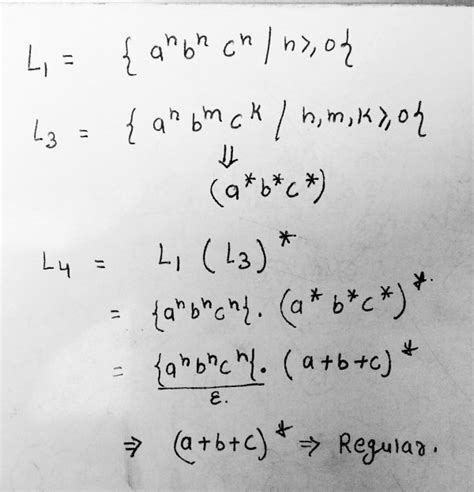 L₁ = { aⁿbⁿ cⁿ / n⩾,0{
L₃ = { aⁿ bᵐ cᵏ / n,m,k⩾,0{
⇓
(a*b*c*)
L₄ = L₁ (L₃)*
= {aⁿbⁿcⁿ{. (a* b*c*)*.
= {aⁿbⁿcⁿ{. (a+b+c)*
ε.
⇒ (a+b+c)* ⇒ Regular.